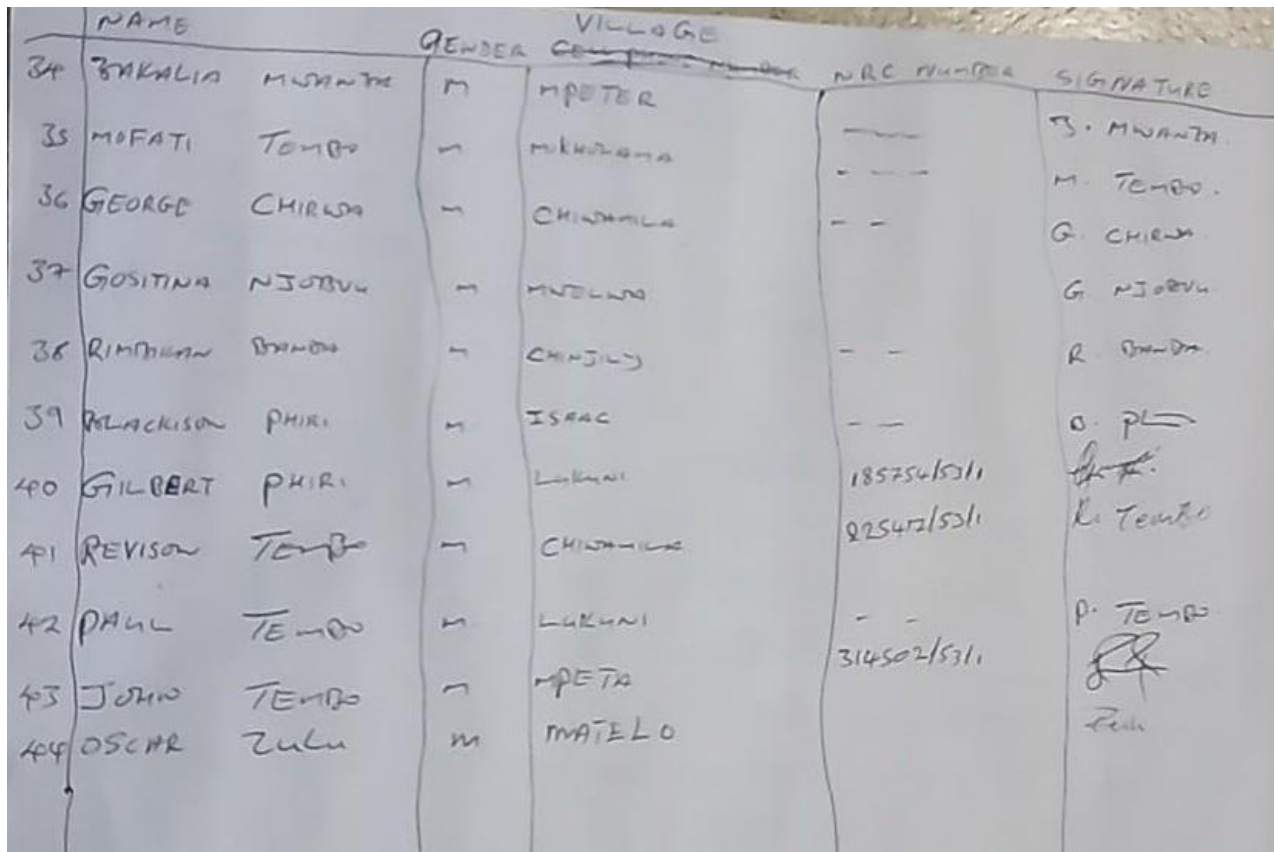 NAME GENDER VILLAGE NRC NUMBER SIGNATURE
34 ZAKALIA MWANZA M MPETER Z. MWANZA.
35 MOFATI TEMBO M MKHULAMA - - - M. TEMBO.
36 GEORGE CHIRWA M CHIWAMILA - - G. CHIRWA.
37 GOSITINA NJOBVU M MWELWA G NJOBVU
38 BANDA M CHINJILY - - R. BANDA.
39 BLACKISON PHIRI M ISAAC - -
40 GILBERT PHIRI M LUKUNI 185754/53/1
41 REVISON TEMBO M CHIWAMILA 225472/53/1 R. Tembo
42 PAUL TEMBO M LUKUNI - - P. TEMBO
43 JOHN TEMBO M MPETA 314502/53/1
44 OSCAR ZULU M MATELO